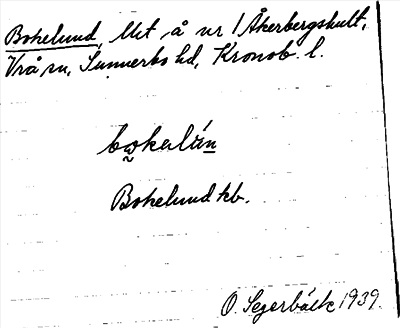 Bokelund, lht å nr 1 Åkerbergshult,
Vrå sn, Sunnerbo hd, Kronob. l.
Bokelund kb.
O. Segerbäck 1939.